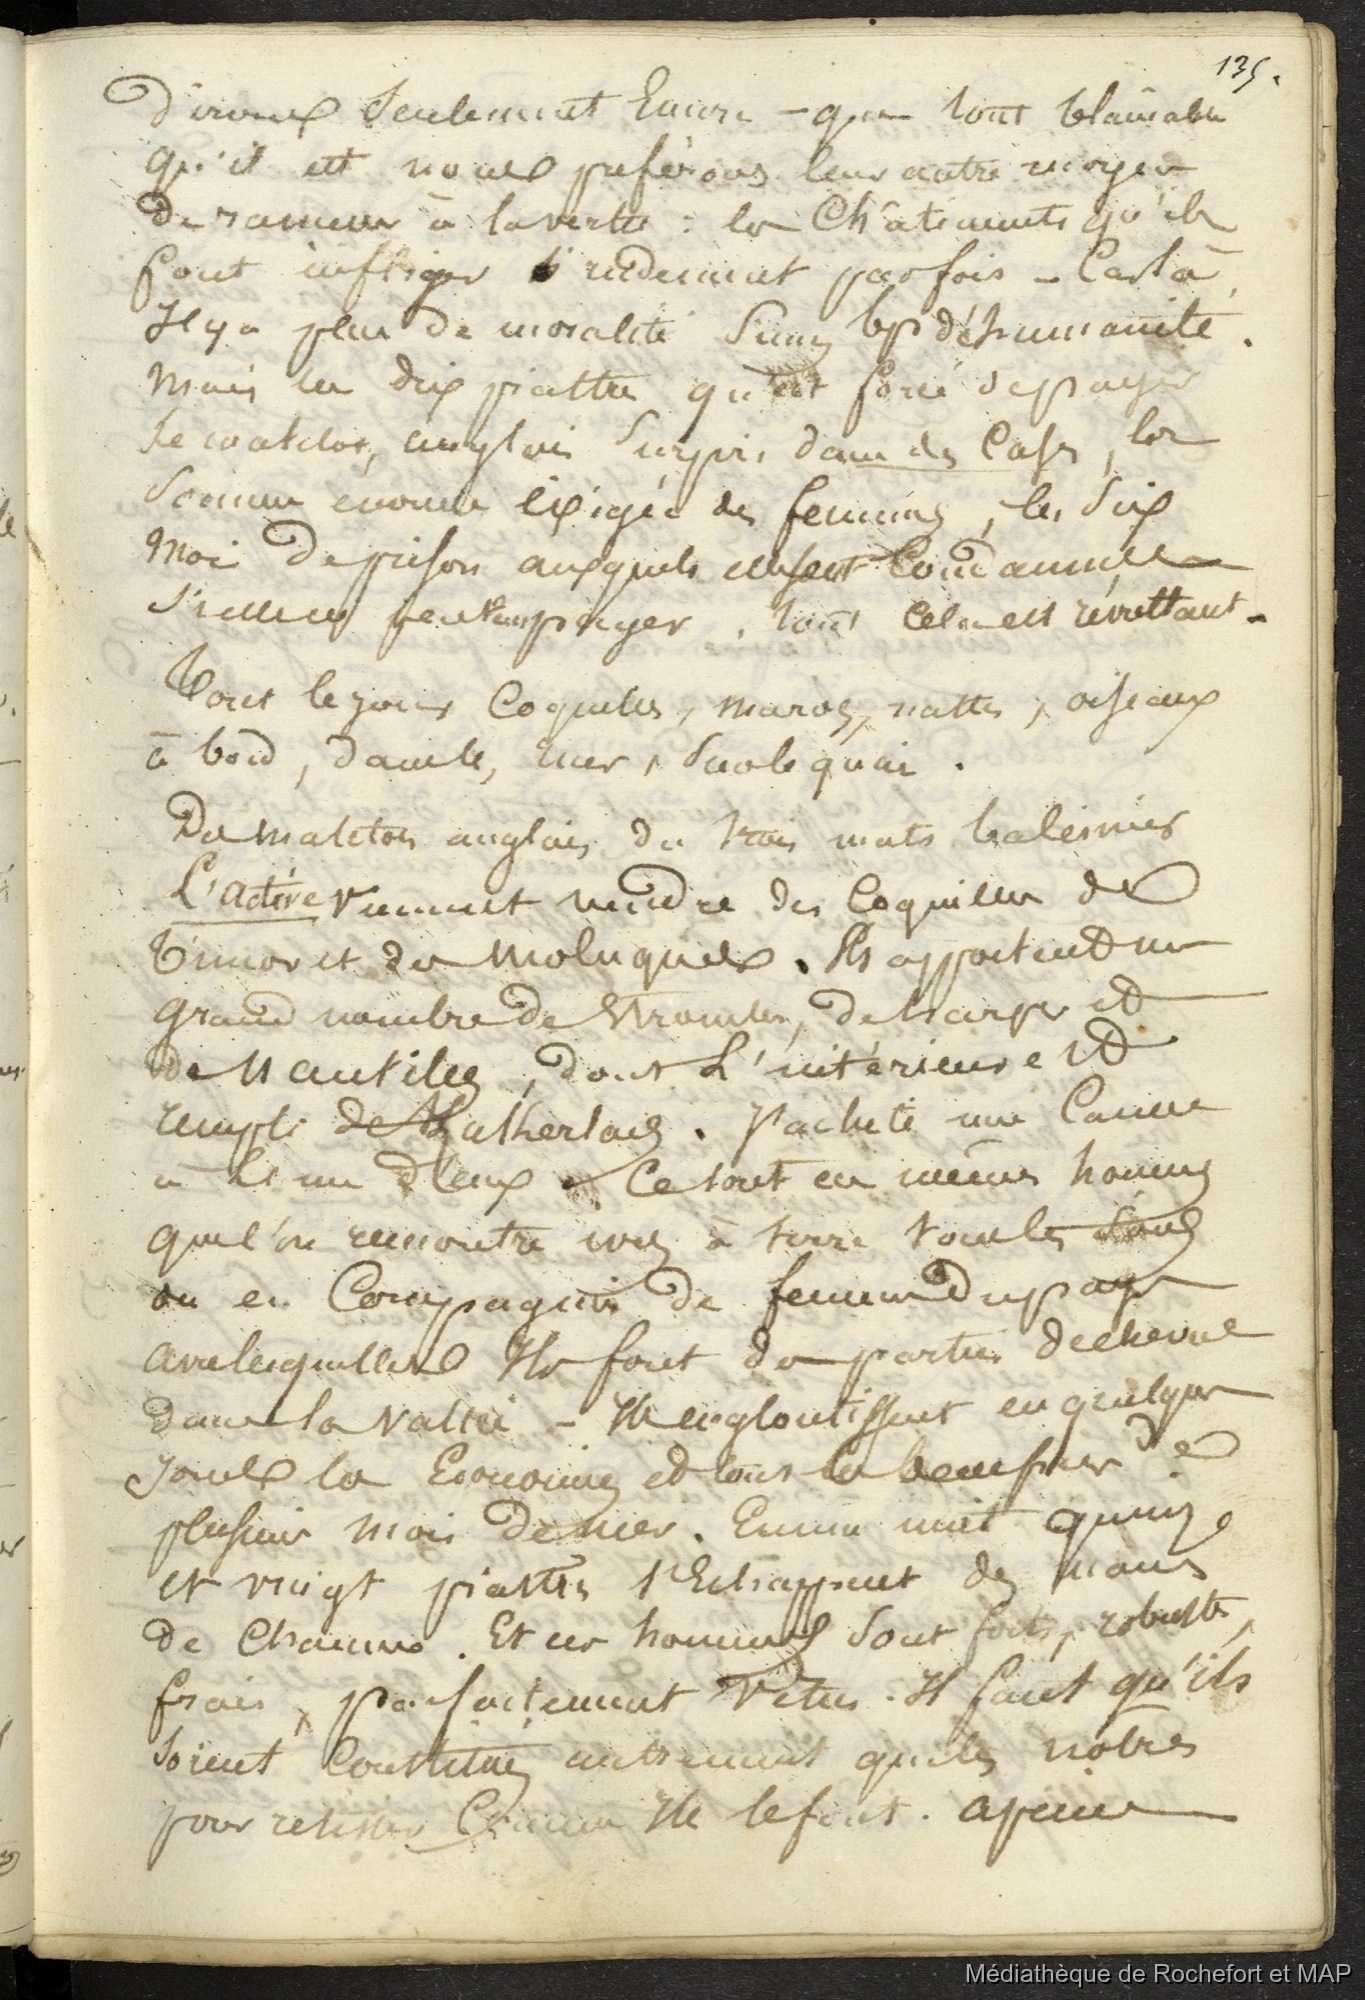 135.
Disons seulement Encore - que tout blâmable
qu'il est nous préférons leur autre moyen
De ramener à la vertu : les Châtiments qu'ils
font infliger si rudement parfois - Car là
Il y a plus de moralité sinon bp d'humanité.
Mais les dix piastres qu'est forcé de payer
le matelot, anglais surpris dans des Cases, les
sommes enormes Exigées des femmes, les six
Mois De prison auxquels elles sont Condamnées
si elles ne peuvent payer, tout Cela est révoltant -
Tout le jour Coquilles, maros, nattes, oiseaux
à bord, dans le, sur le quai.
Des Matelots anglais du trois mats baleinier
L'active viennent vendre des Coquilles de
Timor et des Moluques. Ils apportent un
grand nombre de Strombes, de harpes et
de Nautiles, dont L'intérieur est
rempli de . J'achète une Canne
à l'un D'eux. Ce sont ces mêmes hommes
que l'on rencontre ivres à terre tous les soirs
ou en Compagnie De femmes Du pays
avec lesquelles Ils font des parties de cheval
dans la vallée - Ils engloutissent en quelques
jours les Economies et tous les benefices de
plusieurs Mois De mer. En une nuit quinze
et vingt piastres s'Echappent des mains
de Chacun. Et ces hommes sont forts, robustes,
frais, parfaitement vetus. Il faut qu'ils
soient Constitués autrement que les nôtres
pour resister Comme Ils le font. a peine
Médiathèque de Rochefort et MAP